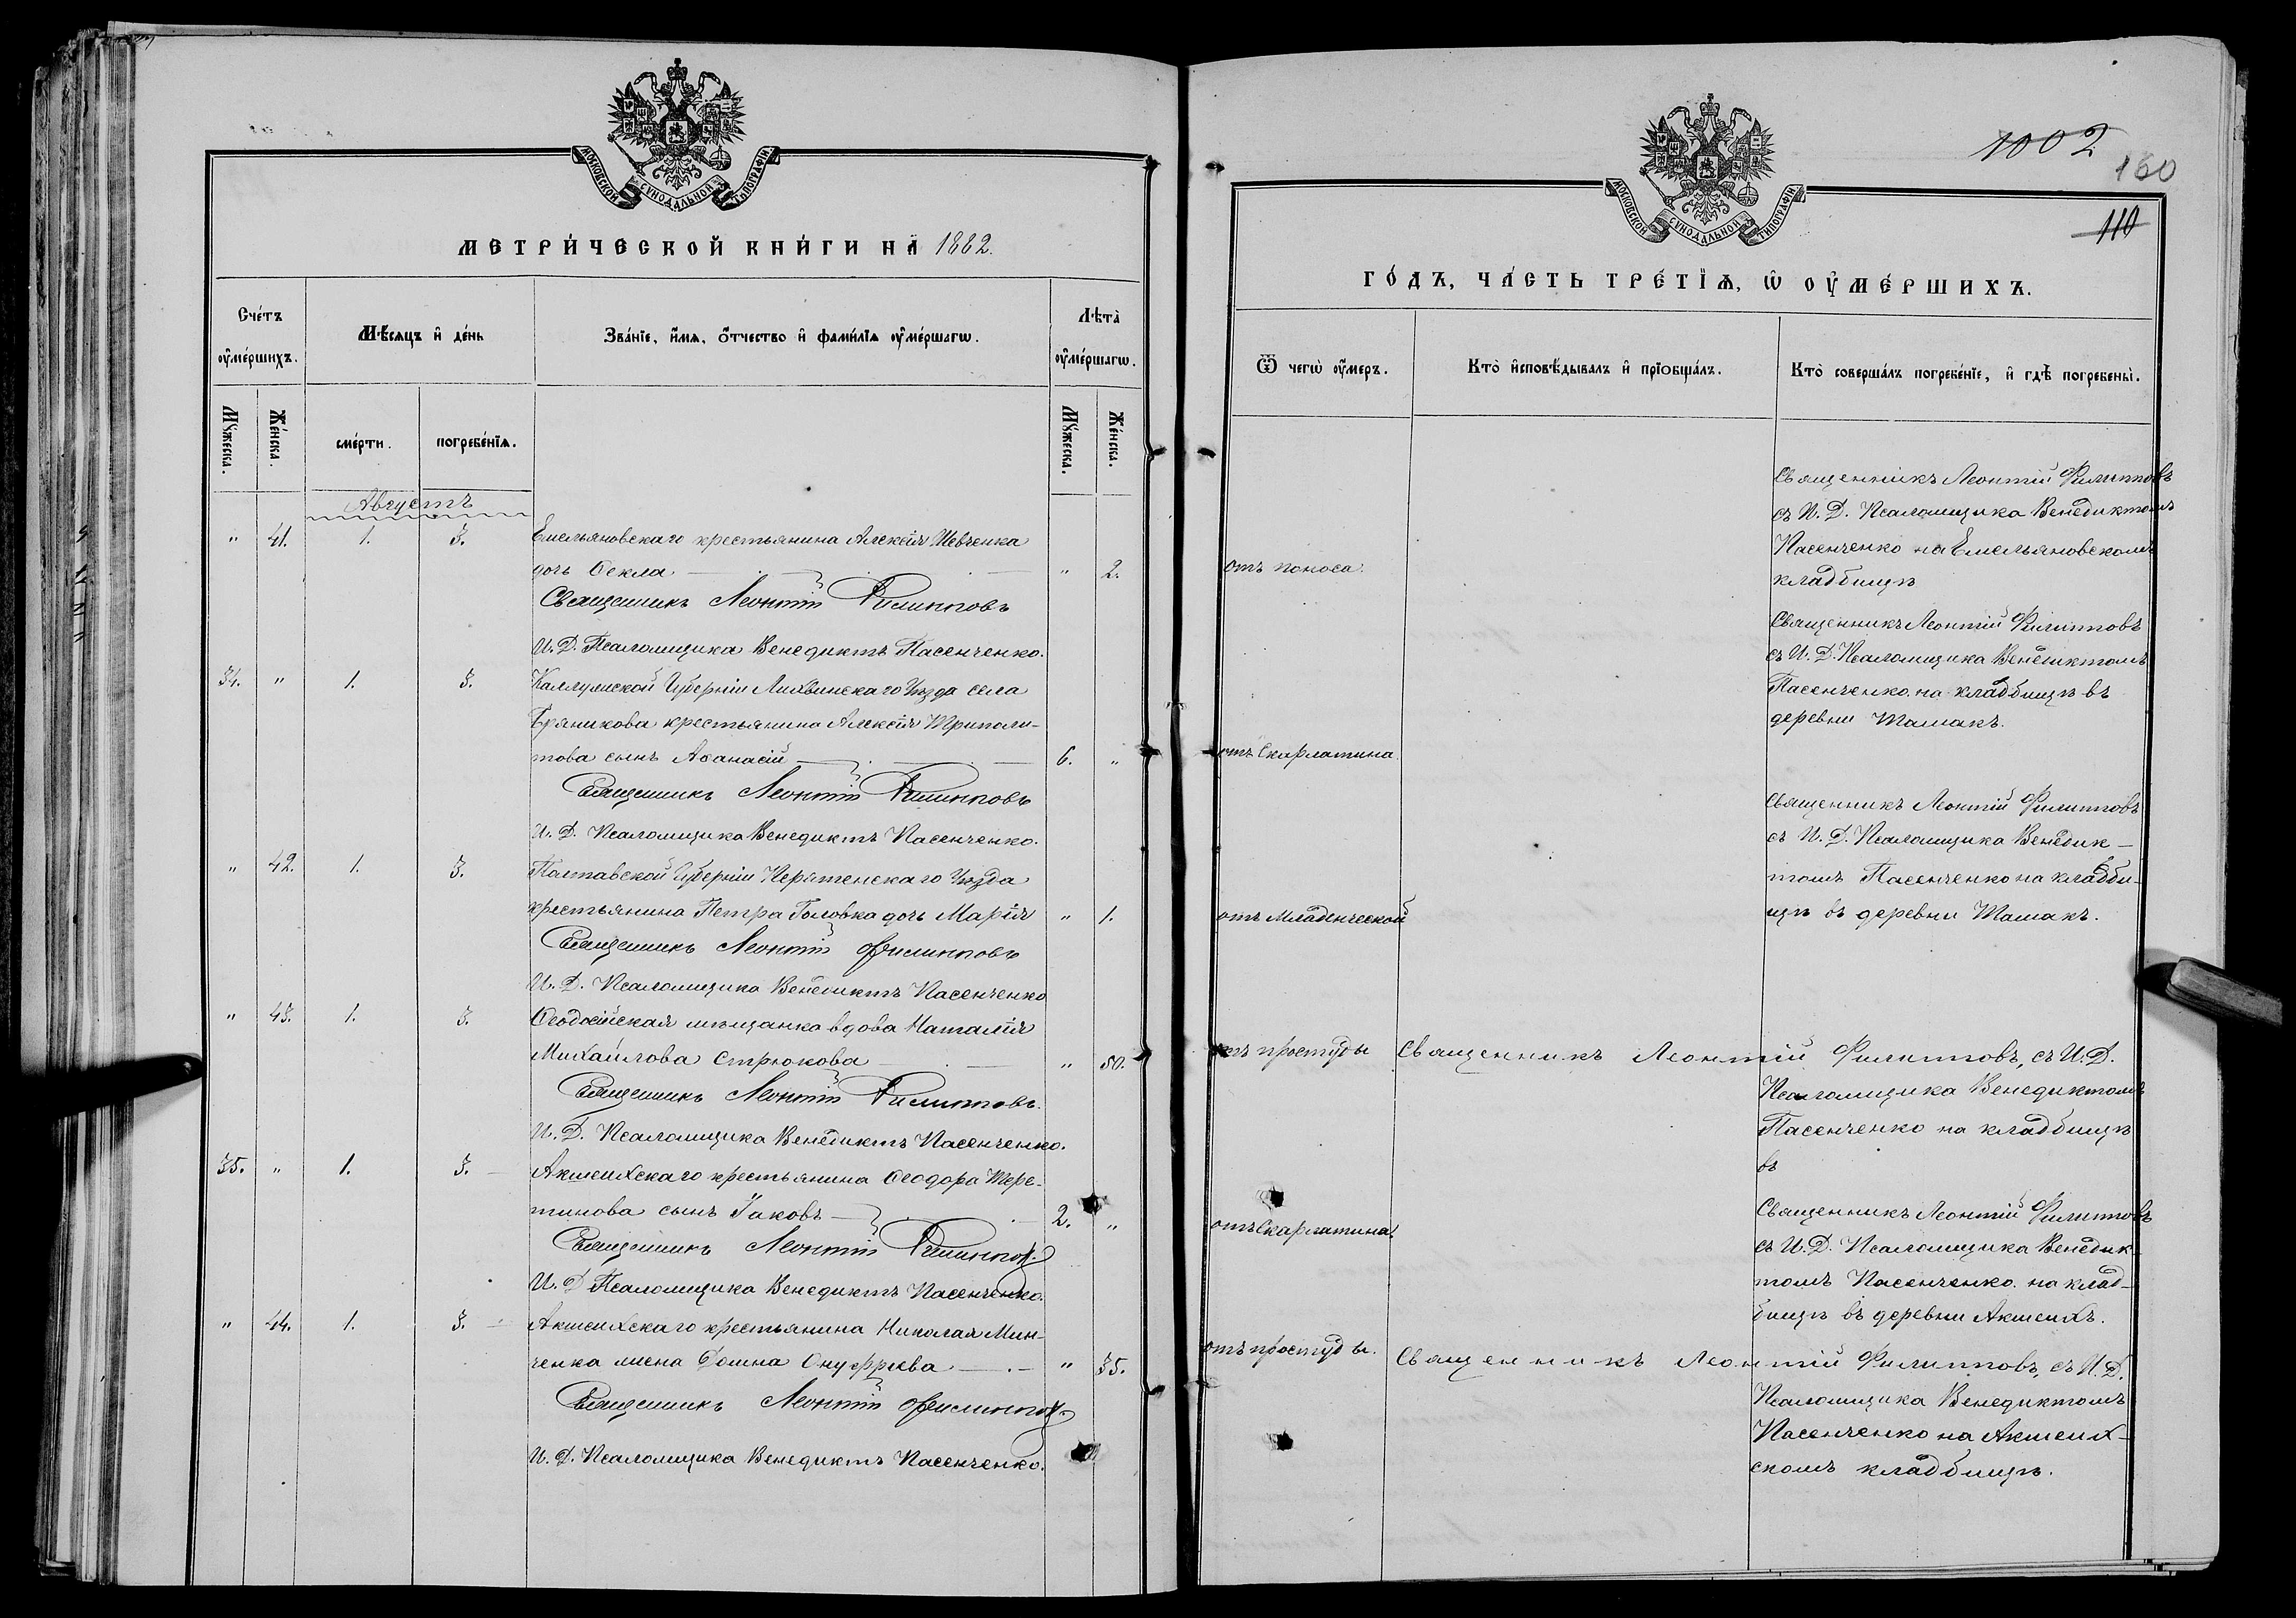 МОСКОВСКОЙ СУНОДАЛЬНОЙ ТИПОГРАФІИ
МЕТРИ́ЧЕСКОЙ КНИ́ГИ НА 1882.
Счётъ оумéршихъ.
Мѣсяцъ и дéнь
Звáніе, имя, óтчество и фамилія оумéршагѡ.
Лѣтà оумéршагѡ.
Мýжеска.
Жéнска.
смéрти.
погребéнія.
Мýжеска.
Жéнска.
Августъ
" 41. 1. 3. Емельяновскаго крестьянина Алексія Шевченка
дочь Ѳекла " 2.
Священникъ Леонтій Филипповъ
И. Д. Псаломщика Венедиктъ Пасенченко.
34. " 1. 3. Каллужской Губерніи Лихвинскаго Уѣзда села
крестьянина Алексія Триполи-
това сынъ Аѳанасій 6. "
Священникъ Леонтій Филипповъ
И. Д. Псаломщика Венедиктъ Пасенченко.
" 42. 1. 3. Полтавской Губерніи Уѣзда
крестьянина Петра Головка дочь Марія " 1.
Священникъ Леонтій Филипповъ
И. Д. Псаломщика Венедиктъ Пасенченко
" 43. 1. 3. Ѳеодосійская мѣщанка вдова Наталія
Михайлова Стрюкова " 50.
Священникъ Леонтій Филипповъ.
И. Д. Псаломщика Венедиктъ Пасенченко.
35. " 1. 3. Акшеихскаго крестьянина Ѳеодора Тере-
тинова сынъ Іаковъ 2. "
Священникъ Леонтій Филипповъ.
И. Д Псаломщика Венедиктъ Пасенченко.
" 44. 1. 3. Акшеихскаго крестьянина Николая Мин-
ченка жена Домна Онуфріева " 35.
Священникъ Леонтій Филипповъ.
И. Д. Псаломщика Венедиктъ Пасенченко.
1002
160
110
МОСКОВСКОЙ СУНОДАЛЬНОЙ ТИПОГРАФІИ
ГÓДЪ, ЧÁСТЬ ТРÉТІѦ, Ѡ ОУМÉРШИХЪ.
Ѿ чегѡ̀ оумеръ.
Ктò исповѣдывалъ и пріобщáлъ.
Ктò совершáлъ погребéніе, и гдѣ погребены̀.
Священникъ Леонтій Филипповъ
съ И. Д. Псаломщика Венедиктомъ
Пасенченко на Емельяновскомъ
отъ поноса.
кладбищѣ
Священникъ Леонтій Филипповъ
съ И. Д. Псаломщика Венедиктомъ
Пасенченко на кладбищѣ въ
деревни Ташакъ.
отъ Скарлатина
Священникъ Леонтій Филипповъ
съ И. Д. Псаломщика Венедик-
томъ Пасенченко на кладби-
отъ Младенческой
щѣ въ деревни Ташакъ.
отъ простуды Священникъ Леонтій Филипповъ, съ И. Д.
Псаломщика Венедиктомъ
Пасенченко на кладбищѣ
въ
Священникъ Леонтій Филипповъ
отъ Скарлатина
съ И. Д. Псаломщика Венедик-
томъ Пасенченко на клад-
бищѣ въ деревни Акшеихъ.
отъ простуды. Священникъ Леонтій Филипповъ, съ И. Д.
Псаломщика Венедиктомъ
Пасенченко на Акшеих-
скомъ кладбищѣ.